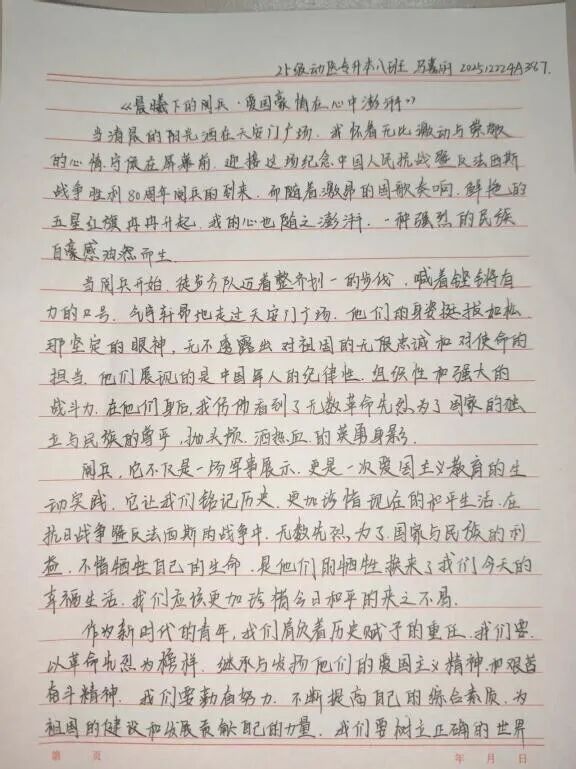 25级动医专升本八班 马嘉雨 202512224A367.
《晨曦下的阅兵·爱国豪情在心中澎湃》
当清晨的阳光洒在天安门广场.我怀着无比激动与崇敬
的心情守候在屏幕前.迎接这场纪念中国人民抗战暨反法西斯
战争胜利80周年阅兵的到来.而随着激昂的国歌奏响.鲜艳的
五星红旗冉冉升起.我的心也随之澎湃.一种强烈的民族
自豪感油然而生.
当阅兵开始.徒步方队迈着整齐划一的步伐,喊着铿锵有
力的口号.气宇轩昂地走过天安门广场.他们的身姿挺拔如松
那坚定的眼神,无不透露出对祖国的无限忠诚和对使命的
担当.他们展现的是中国军人的纪律性.组织性和强大的
战斗力.在他们身后,我仿佛看到了无数革命先烈为了国家的独
立与民族的尊严,抛头颅.洒热血的英勇身影.
阅兵,它不仅是一场军事展示.更是一次爱国主义教育的生
动实践.它让我们铭记历史.更加珍惜现在的和平生活.在
抗日战争暨反法西斯的战争中.无数先烈为了国家与民族的利
益.不惜牺牲自己的生命.是他们的牺牲换来了我们今天的
幸福生活.我们应该更加珍惜今日和平的来之不易.
作为新时代的青年,我们肩负着历史赋予的重任.我们要
以革命先烈为榜样.继承与发扬他们的爱国主义精神和艰苦
奋斗精神.我们要勤奋努力.不断提高自己的综合素质.为
祖国的建设和发展贡献自己的力量.我们要树立正确的世界
第 页 年 月 日